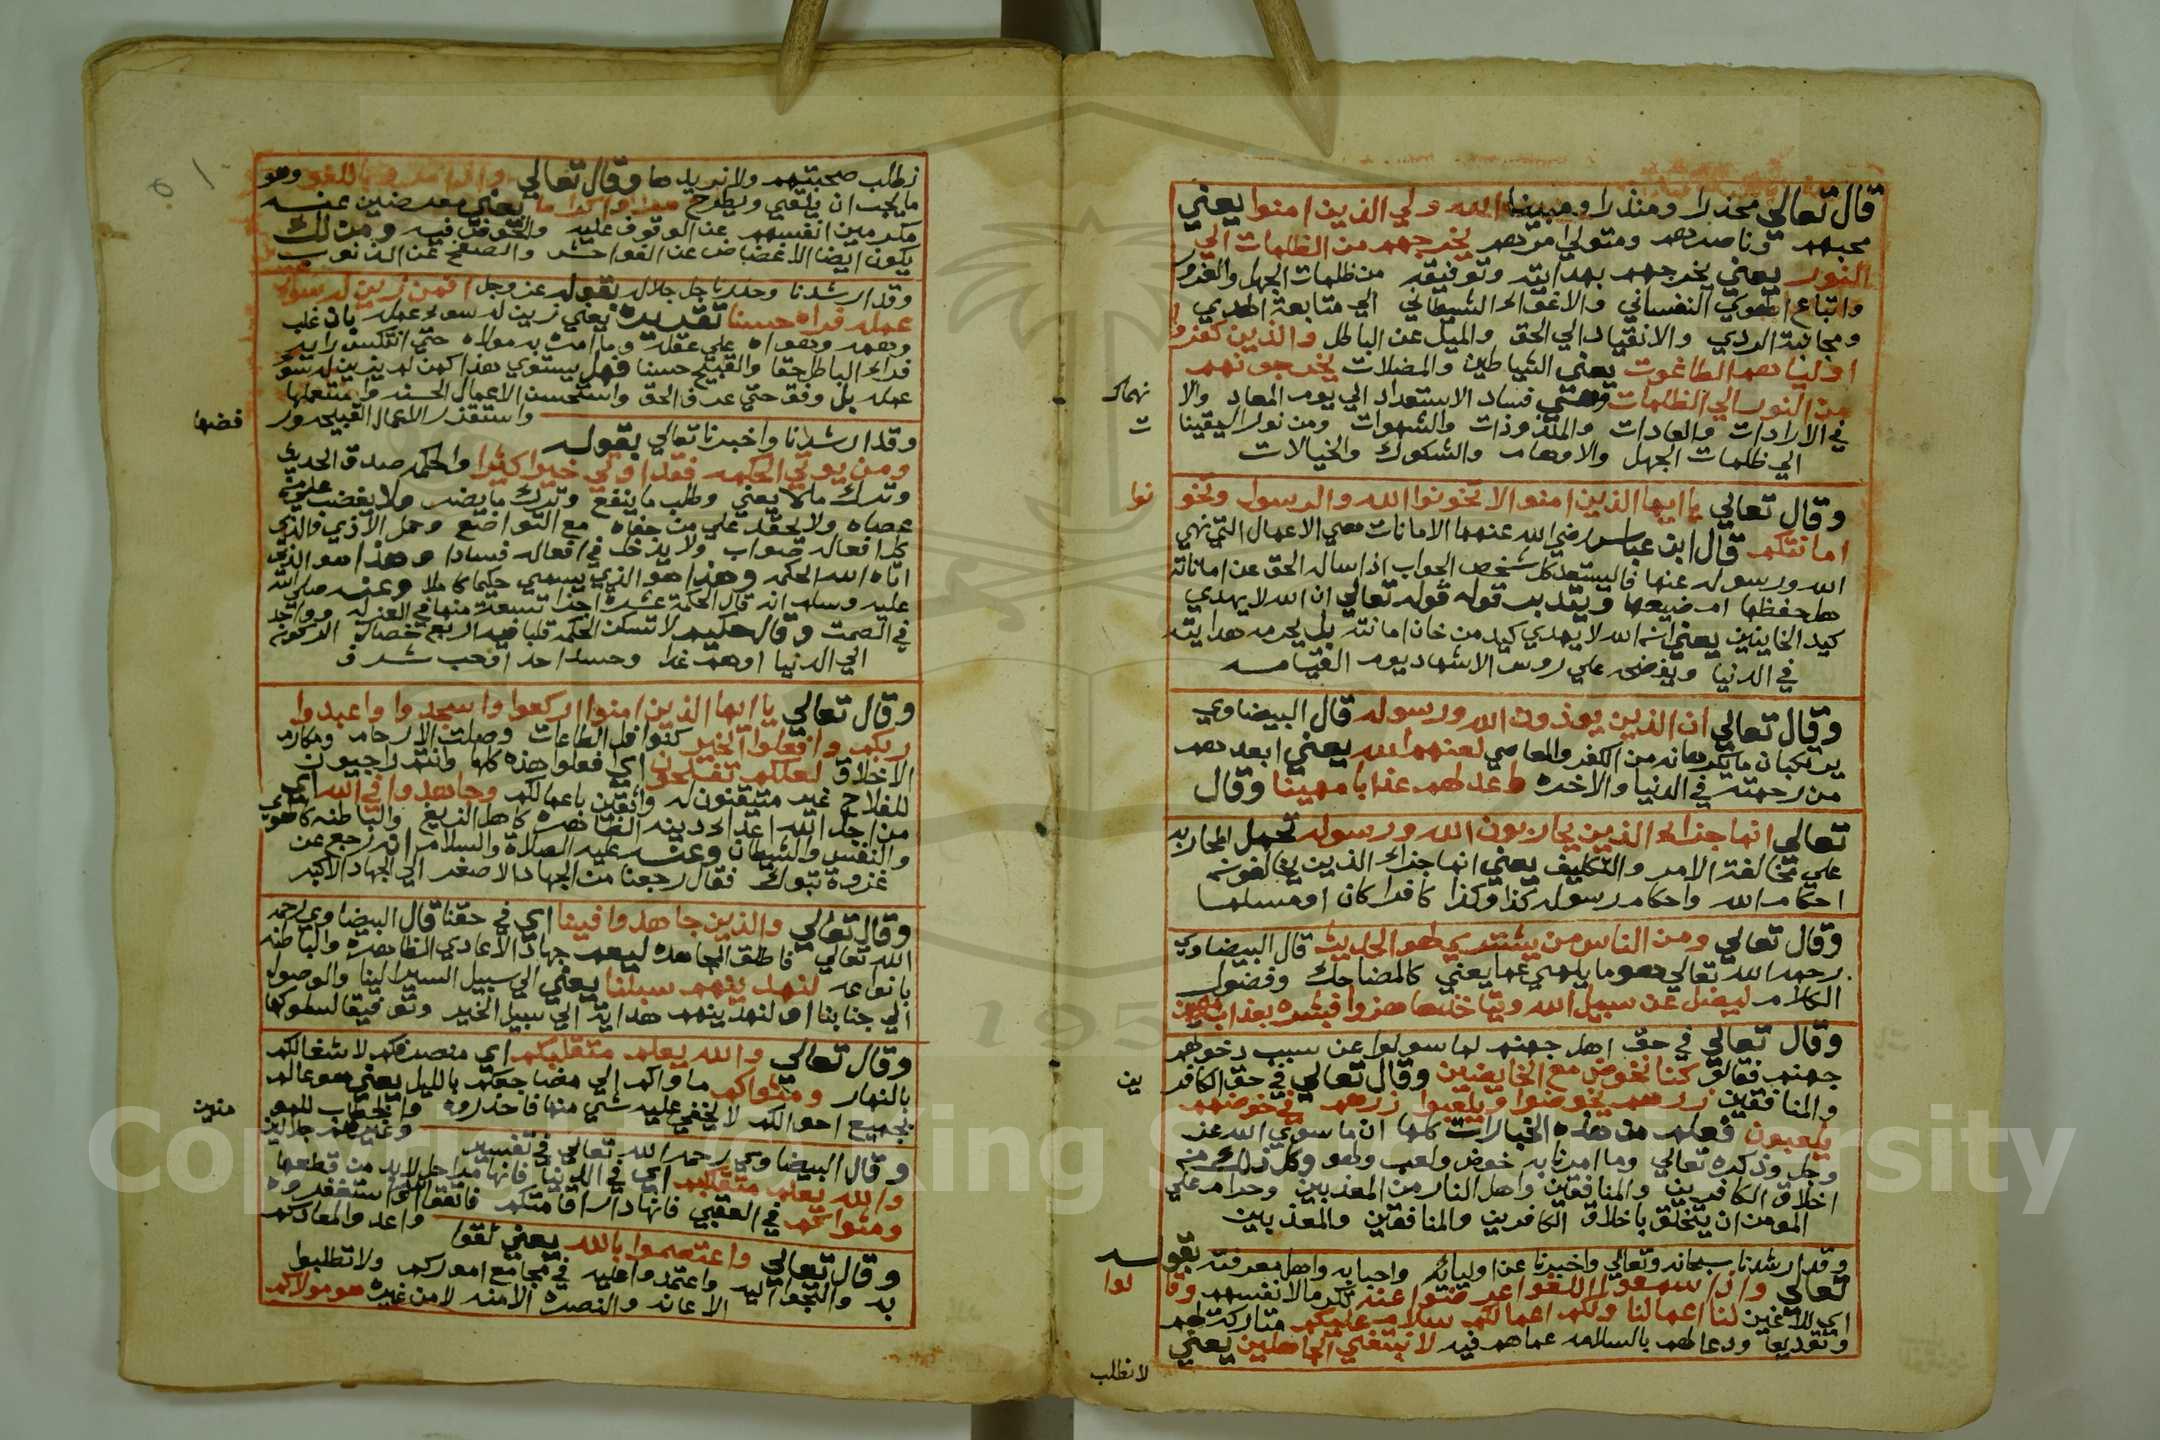 قال تعالي محذرا ومنذرا ومبينا الله ولي الذين امنوا يعني
محبهم وناصرهم ومتولي امرهم يخرجهم من الظلمات الي
النور يعني يخرجهم بهدايته وتوفيقه من ظلمات الجهل والغرور
واتباع الهوي النفساني والاغوآء الشيطاني الي متابعة الهدي
ومجانبة الردي والانقياد الي الحق والميل عن الباطل والذين كفروا
اوليآءهم الطاغوت يعني الشياطين والمضلات يخرجونهم
من النور الي الظلمات وهي فساد الاستعداد الي يوم المعاد والا
نهماك
في الارادات والعادات والملذوذات والشهوات ومن نور اليقينا
ت
الي ظلمات الجهل والاوهام والشكوك والخيالات
وقال تعالي يا ايها الذين امنوا لا تخونوا الله والرسول وتخو
نوا
اماناتكم قال ابن عباس رضي الله عنهما الامانات هي الاعمال التي نهي
الله ورسوله عنها فاليستعد كل شخص الجواب اذا ساله الحق عن اماناته
هل حفظها ام ضيعها ويتدبر قوله تعالي ان الله لا يهدي
كيد الخاينين يعني ان الله لا يهدي كيد من خان امانته بل يحرمه هدايته
في الدنيا ويفضحه علي روس الاشهاد يوم القيامه
وقال تعالي ان الذين يوذون الله ورسوله قال البيضاوي
يرتكبان ما يكرهانه من الكفر والمعاصي لعنهم الله يعني ابعدهم
من رحمته في الدنيا والاخره واعد لهم عذابا مهينا وقال
تعالي انما جزاء الذين يحاربون الله ورسوله تحمل المحاربه
علي مخالفة الامر والتكليف يعني انما جزاء الذين يخالفون
احكام الله واحكام رسوله كذا وكذا كافرا كان او مسلما
وقال تعالي ومن الناس من يشتري لهو الحديث قال البيضاوي
رحمه الله تعالي هو ما يلهي عما يعني كالمضاحك وفضول
الكلام ليضل عن سبيل الله ويتاخذها هزوا فبشره بعذاب مهين
وقال تعالي في حق اهل جهنم لما سولوا عن سبب دخولهم
جهنم فقالو كنا نخوض مع الخايضين وقال تعالي في حق الكافر
ين
والمنافقين زرهم يخوضوا ويلعبوا زرهم في خوضهم
يلعبون فعلم من هذه العبارات كلها ان ما سوي الله عز
وجل وذكره تعالي وما امرنا به خوض ولعب ولهو وكل ذلك من
اخلاق الكافرين والمنافقين واهل النار من المعذبين وحرام علي
المومن ان يتخلق باخلاق الكافرين والمنافقين والمعذبين
وقد ارشدنا سبحانه وتعالي واخبرنا عن اوليائه واحبابه واهل معرفته بقوله
تعالي واذا سمعوا اللغو اعرضوا عنه تكرما لانفسهم وقا
لوا
اي للاغين لنا اعمالنا ولكم اعمالكم سلام عليكم متاركة لهم
وتوديعا ودعا لهم بالسلامه عما هم فيه لا نبتغي الجاهلين يعني
لا نطلب
نطلب صحبتهم ولا نريدها وقال تعالي واذا مروا باللغو وهو
ما يجب ان يلغي ويطرح مروا كراما يعني معرضين عنه
مكرمين انفسهم عن الوقوف عليه والخوض فيه ومن ذلك
يكون ايضا الاغضاض عن الفواحش والصفح عن الذنوب
وقد ارشدنا وحذرنا جل جلاله بقوله عز وجل افمن زين له سوء
عمله فراه حسنا تقديره يعني زين له سوء عمله بان غلب
وهمه وهواه علي عقله وما امره به مولاه حتي انتكس رايه
فراء الباطل حقا والقبيح حسنا فهل يستوي هذا كمن لم يزين له سوء
عمله بل وفق حتي عرف الحق واستحسن الاعمال الحسنه واستعملها
واستقذر الاعمال القبيحه ور
فضها
وقد ارشدنا واخبرنا تعالي بقوله
ومن يوتي الحكمه فقد اوتي خيرا كثيرا والحكمه صدق الحديث
وترك ما لا يعني وطلب ما ينفع وترك ما يضر ولا يغضب علي من
عصاه ولا يحقد علي من جفاه مع التواضع وحمل الاذي فالذي
كل افعاله صواب ولا يدخل في افعاله فسادا وهذا هو الذي
اتاه الله الحكمه وهذا هو الذي يسمي حكيما كاملا وعنه صلي الله
عليه وسلم انه قال الحكمة عشرة اجزا تسعة منها في العزله وواحد
في الصمت وقال حكيم لا تسكن الحكمه قلبا فيه اربع خصال الركون
الي الدنيا او هم غد وحسد احد او حب شرف
وقال تعالي يا ايها الذين امنوا اركعوا واسجدوا واعبدوا
ربكم وافعلوا الخير كنوافل الطاعات وصلت الارحام ومكارم
الاخلاق لعلكم تفلحون اي افعلوا هذه كلها وانتم راجيون
للفلاح غير متيقنون له واثقين باعمالكم وجاهدوا في الله اي
من اجل الله اعدا دينه الظاهره كاهل الزيغ والباطنه كالهوي
والنفس والشيطان وعنه عليه الصلاة والسلام انه رجع عن
غزوة تبوك فقال رجعنا من الجهاد الاصغر الي الجهاد الاكبر
وقال تعالي والذين جاهدوا فينا اي في حقنا قال البيضاوي رحمه
الله تعالي فاطلق المجاهده ليعم جهاد الاعادي الظاهره والباطنه
بانواعه لنهدينهم سبلنا يعني الي سبيل السير الينا والوصول
الي جنابنا او لنهدينهم هداية الي سبيل الخير وتوفيقا لسلوكها
وقال تعالي والله يعلم متقلبكم اي منصرفكم لاشغالكم
بالنهار ومثواكم ماواكم الي مضاجعكم بالليل يعني هو عالم
بجميع احوالكم لا يخفي عليه شي منها فاحذروه والخطاب للمو
منين
وغيرهم جلالين
وقال البيضاوي رحمه الله تعالي في تفسير
والله يعلم متقلبكم اي في الدنيا فانها مراحل لابد من قطعها
ومثواكم في العقبي فانها دار اقامتكم فاتقوا الله واستغفروه
واعدوا لمعادكم
وقال تعالي واعتصموا بالله يعني ثقوا
به والتجوا اليه واعتمدوا عليه في مجامع اموركم ولا تطلبوا
الاعانه والنصره الا منه لا من غيره هو مولاكم
Copyright © King Saud University
195